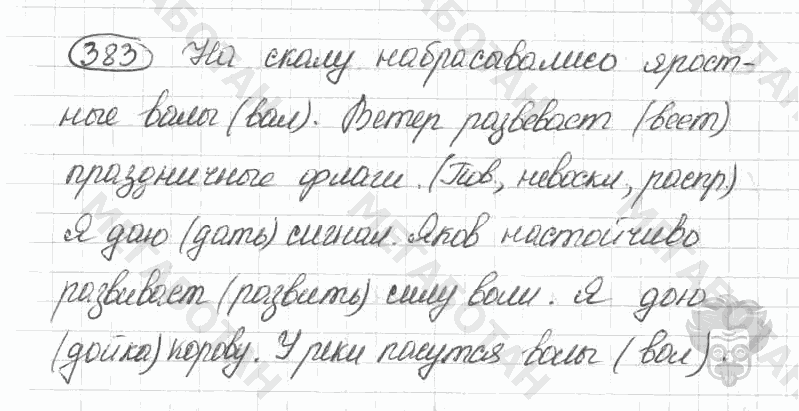 383 На скалу набрасавались ярост-
ные валы (вал). Ветер развевает (веет)
праздничные флаги. (Пов., невоскл, распр.)
Я даю (дать) сигнал. Яков настойчиво
развивает (развить) силу воли. Я дою
(дойка) корову. У реки пасутся волы (вол).
МЕГАБОТАН
МЕГАБОТАН
МЕГАБОТАН